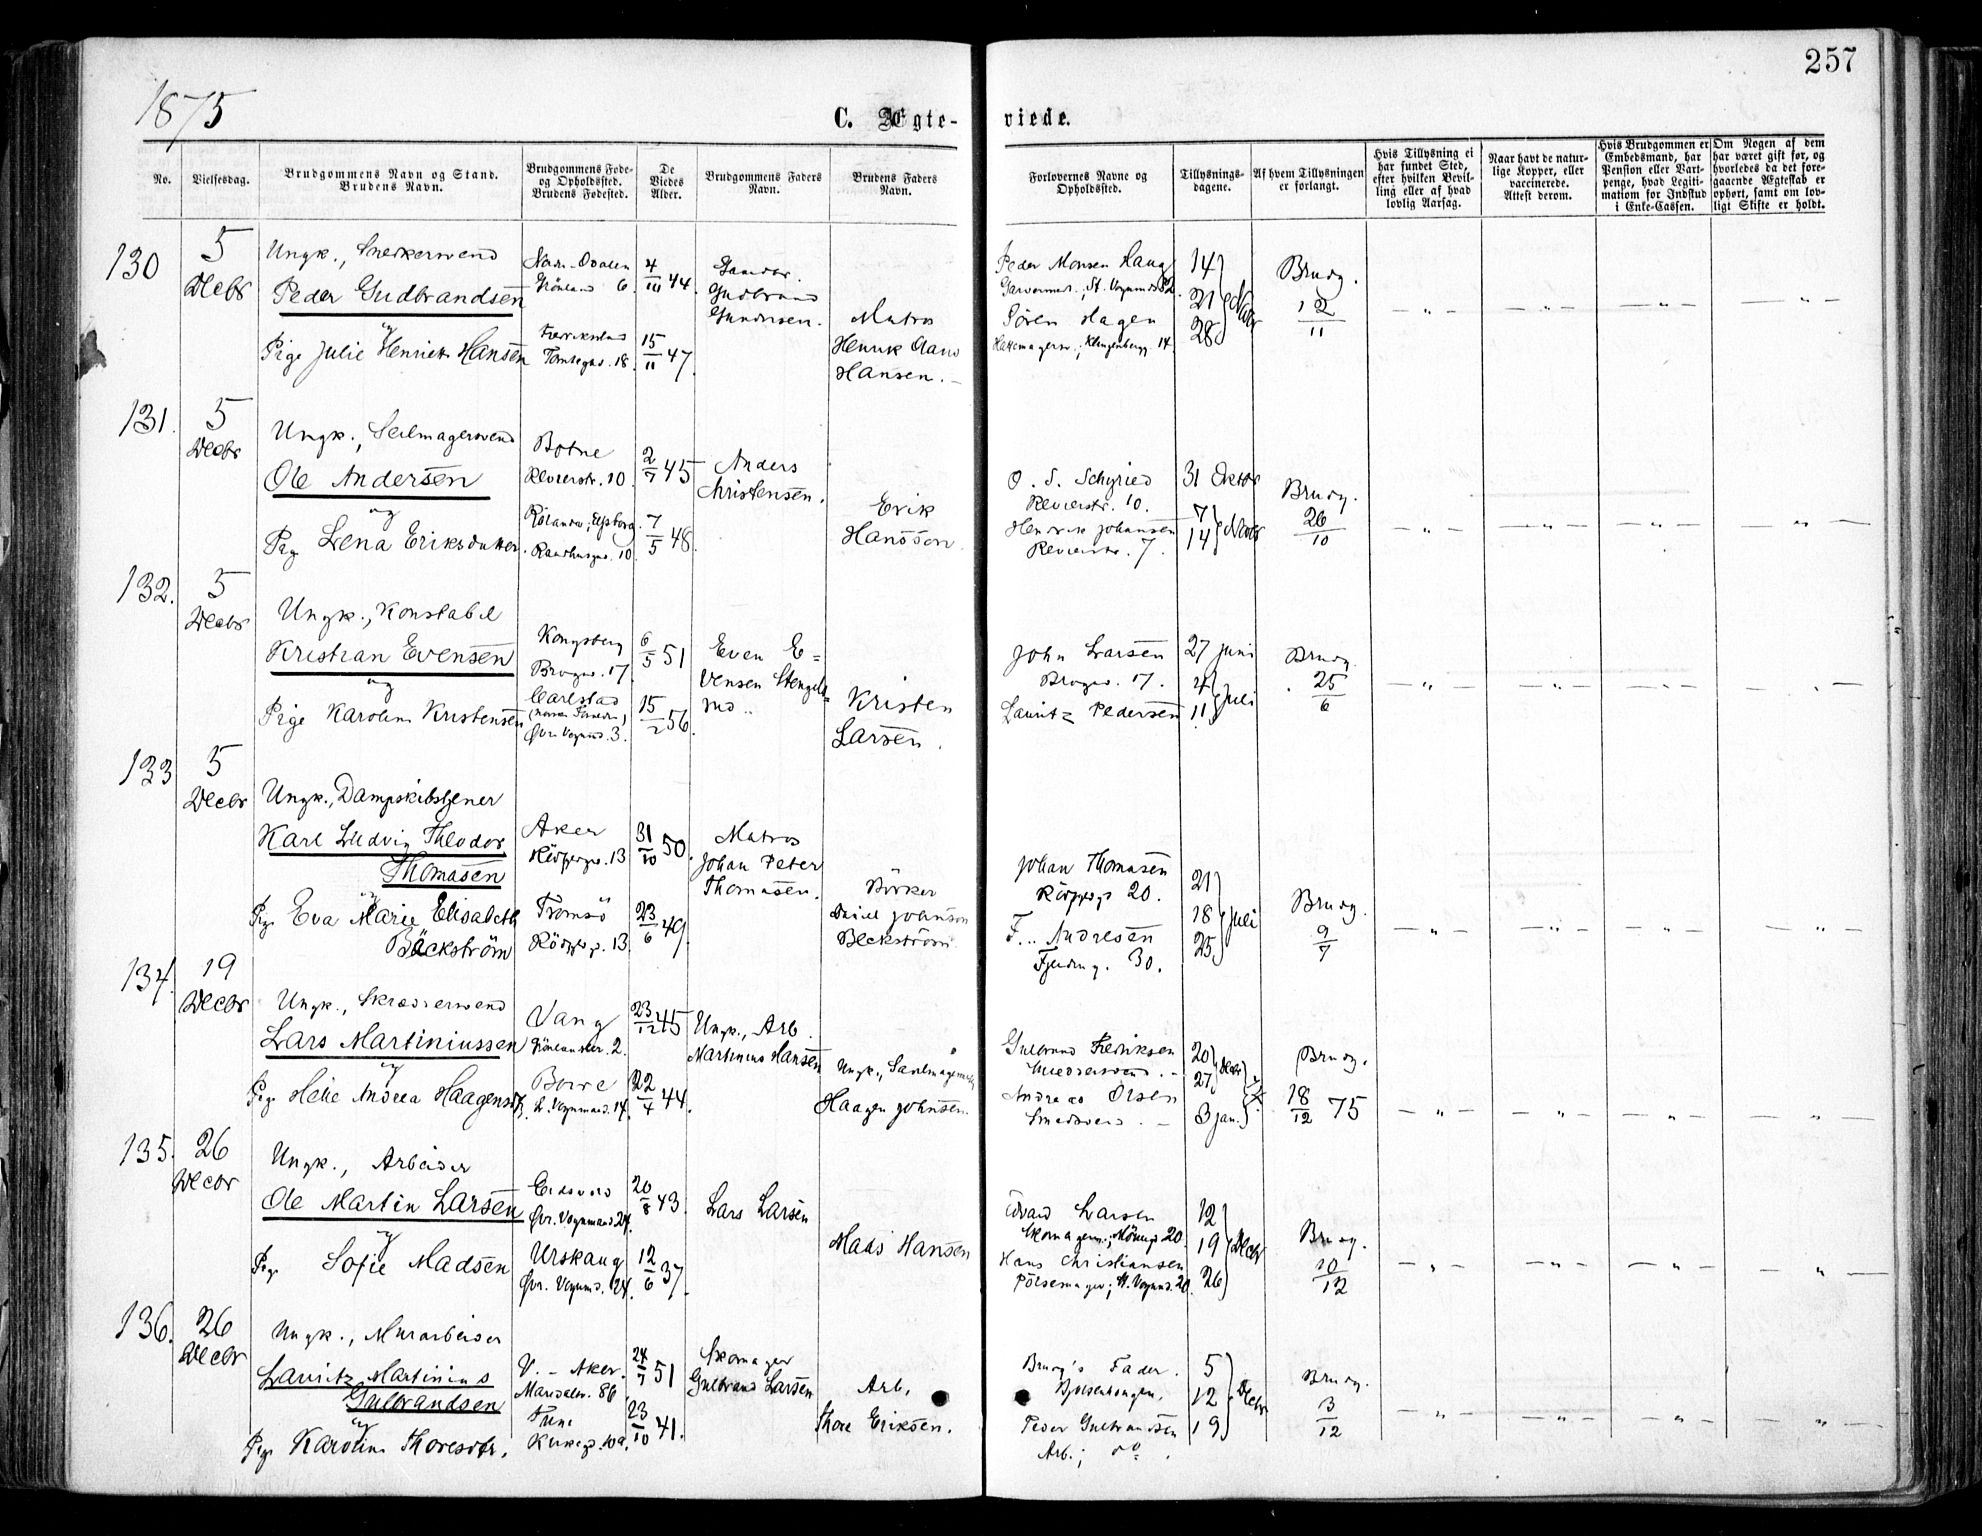 257
1875
C. Ægte-
viede.
No.
Vielsesdag.
Brudgommens Navn og Stand.
Brudens Navn.
Brudgommens Føde-
og Opholdssted.
Brudens Fødested.
De
Viedes
Alder.
Brudgommens Faders
Navn.
Brudens Faders
Navn.
Forlovernes Navne og
Opholdssted.
Tillysnings-
dagene.
Af hvem Tillysningen
er forlangt.
Hvis Tillysning ei
har fundet Sted,
efter hvilken Bevil-
ling eller af hvad
lovlig Aarsag.
Naar havt de natur-
lige Kopper, eller
vaccinerede.
Attest derom.
Hvis Brudgommen er
Embedsmand, har
Pension eller Vart-
penge, hvad Legiti-
mation for Indskud
i Enke-Cassen.
Om Nogen af dem
har været gift før, og
hvorledes da det fore-
gaaende Ægteskab er
ophørt, samt om lov-
ligt Skifte er holdt.
130
5
Decbr
Ungk., Snedkersvend
Peder Gudbrandsen
og
Pige Julie Henriette Hansen
Grönland 6.
4/10 44.
Fredrikstad
Tomtegd. 18.
15/11 47.
Gaardbr.
Gudbrand
Gundersen.
Matros
Henrik
Hansen.
Peder Monsen Haug
Garvermest.; St. Vognmds 2.
Sören Hagen
Hattemagersv.; Klingenbergg. 14.
14
21
28
Novbr
Brudg.
12/11
131.
5
Decbr
Ungk., Seilmagersvend
Ole Andersen
og
Pig. Lena Eriksdatter.
Botne
Revierstr. 10.
2/7 45
Raadhusgd. 10.
7/5 48.
Anders
Christensen.
Erik
Hansson.
O. S. Schyried
Revierstr. 10.
Henrik Johansen
Revierstr. 7.
31 Oktbr
7
14
Novbr
Brudg.
26/10
132.
5
Decbr
Ungk., Konstabel
Kristian Evensen
og
Pige Karoline Kristensen
Kongsberg
Brogd. 17.
6/5 51
Carlstad
Övr. Vognmd. 3.
15/2 56.
Even E=
vensen Stengels=
rud.
Kristen
Larsen.
John Larsen
Brogd. 17.
Lauritz Pedersen
27 Juni
4
11
Juli
Brudg.
25/6
133
5
Decbr
Ungk., Dampskibstjener
Karl Ludvig Theodor
Thomasen
og
Pig. Eva Marie Elisabeth
Bäckström
Aker
Rödfyldgd. 13
31/10 50.
Tromsö
13.
23/6 49.
Matros
Johan Peter
Thomasen.
Bödker
Daniel Johnson
Beckström
Johan Thomasen
20.
F... Andresen
Fjerding. 30.
21
18
25
Juli
Brudg.
9/7
134.
19
Decbr
Ungk., Skrædersvend
Lars Martiniussen
og
Pige Helie Andrea Haagensdtr.
Vang
Grönlandsler. 2.
23/12 45
Borre
L. Vognmand. 14.
22/4 44.
Ungk., Arb.
Martinius Hansen
Ungk., Seilmagersvd
Haagen Johnsen.
Gulbrand Fredriksen
Snedkersvend. –
Andreas Olsen
Smedsvend. –
20
27
Decbr
3 Jan.
Brudg.
18/12 75
135.
26
Decbr
Ungk., Arbeider
Ole Martin Larsen
og
Pige Sofie Madsen
Eidsvold
Övr. Vognmand 24.
20/8 43.
Urskaug
Övr. Vognmd. 24.
12/6 37.
Lars Larsen
Mads Hansen
Edvard Larsen
Skomagerm.; Möllergd 20.
Hans Christiansen
Pölsemager; St. Vognmd. 20.
12
19
26
Decbr
Brudg.
10/12
136.
26
Decbr
Ungk., Murarbeider
Lauritz Martinius
Gulbrandsen
og
Pige Karoline Thoresdtr.
V. – Aker.
Maridalsv. 86.
24/7 51
Tune
Kirkegd. 10a.
23/10 41.
Skomager
Gulbrand Larsen
Arb.
Thore Eriksen.
Brudg's Fader.
Bjölsenhaugen.
Peder Gulbrandsen
Arb.; do.
5
12
19
Decbr
Brudg.
3/12